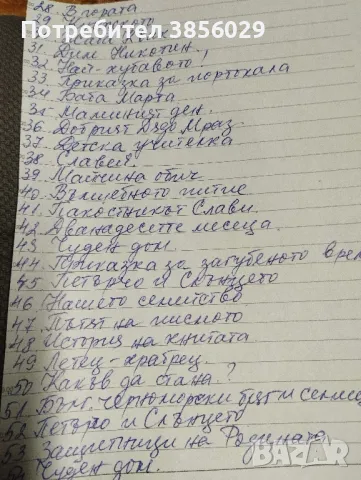 Потребител 3856029
28. В гората
29.
30.
31. Дим Никотин.
32. Най-хубавото!
33. Приказка за портокала
34. Баба Марта
35. Маминият ден.
36. Добрият Дядо Мраз.
37. Детска учителка
38 Славей.
39. Майчина обич
40. Вълшебното питие
41. Пакостникът Слави.
42. Дванадесете месеца.
43. Чуден дом.
44. Приказка за загубеното врем
45. Петърчо и Слънцето
46. Нашето семейство
47. Пътят на писмото
48. История на книгата
49. Летец-храбрец.
50. Какъв да стана?
51. Бълг. черноморски бряг и
52. Петърчо и Слънцето
53. Защитници на Родината
Чуден дом.
bazar